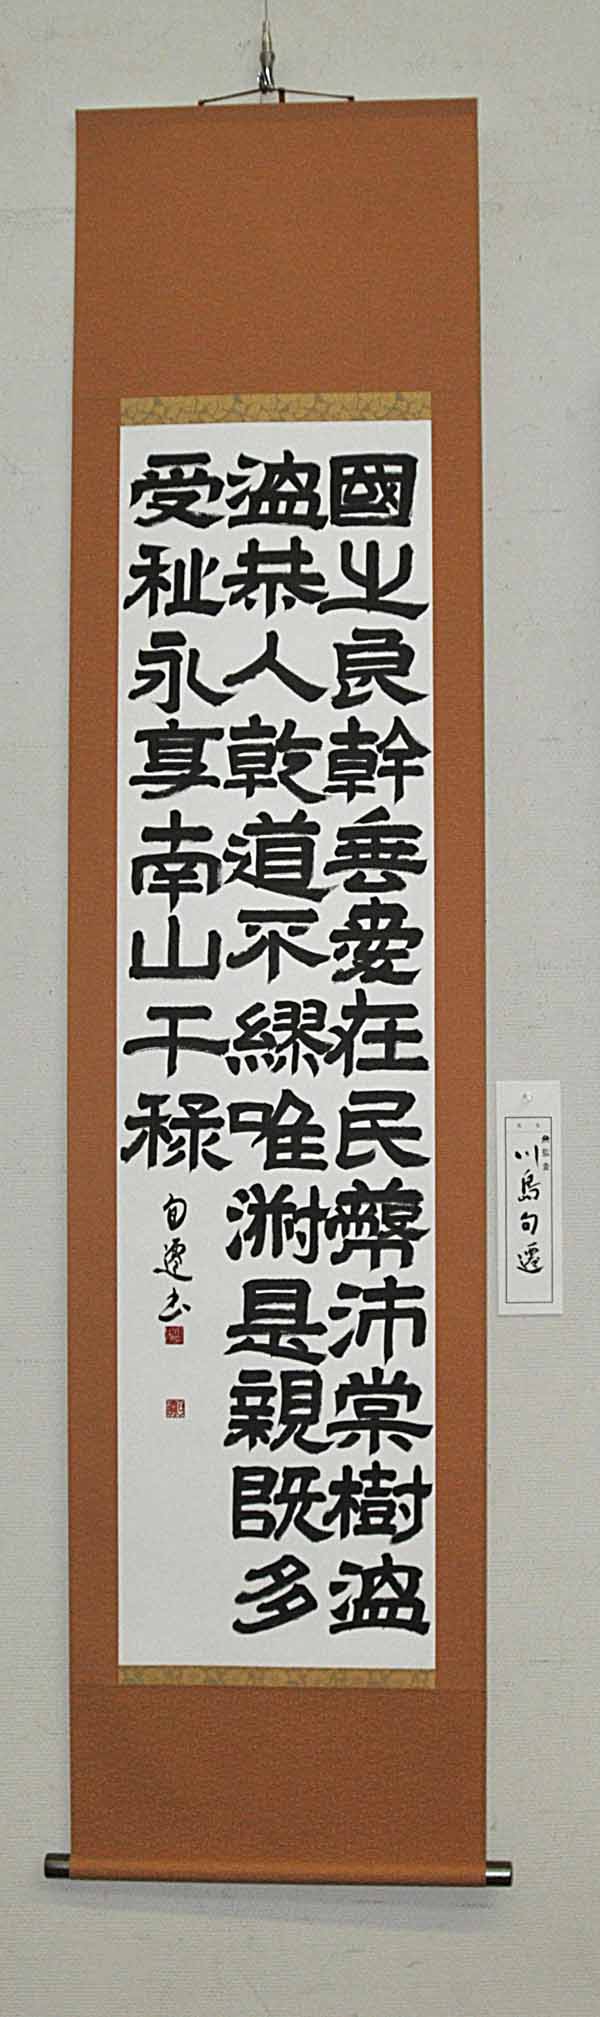 國之良幹垂愛在民蔽沛棠樹溫
溫恭人乾道不繆唯淑是親既多
受祉永享南山干祿
旬遷書
川島旬遷